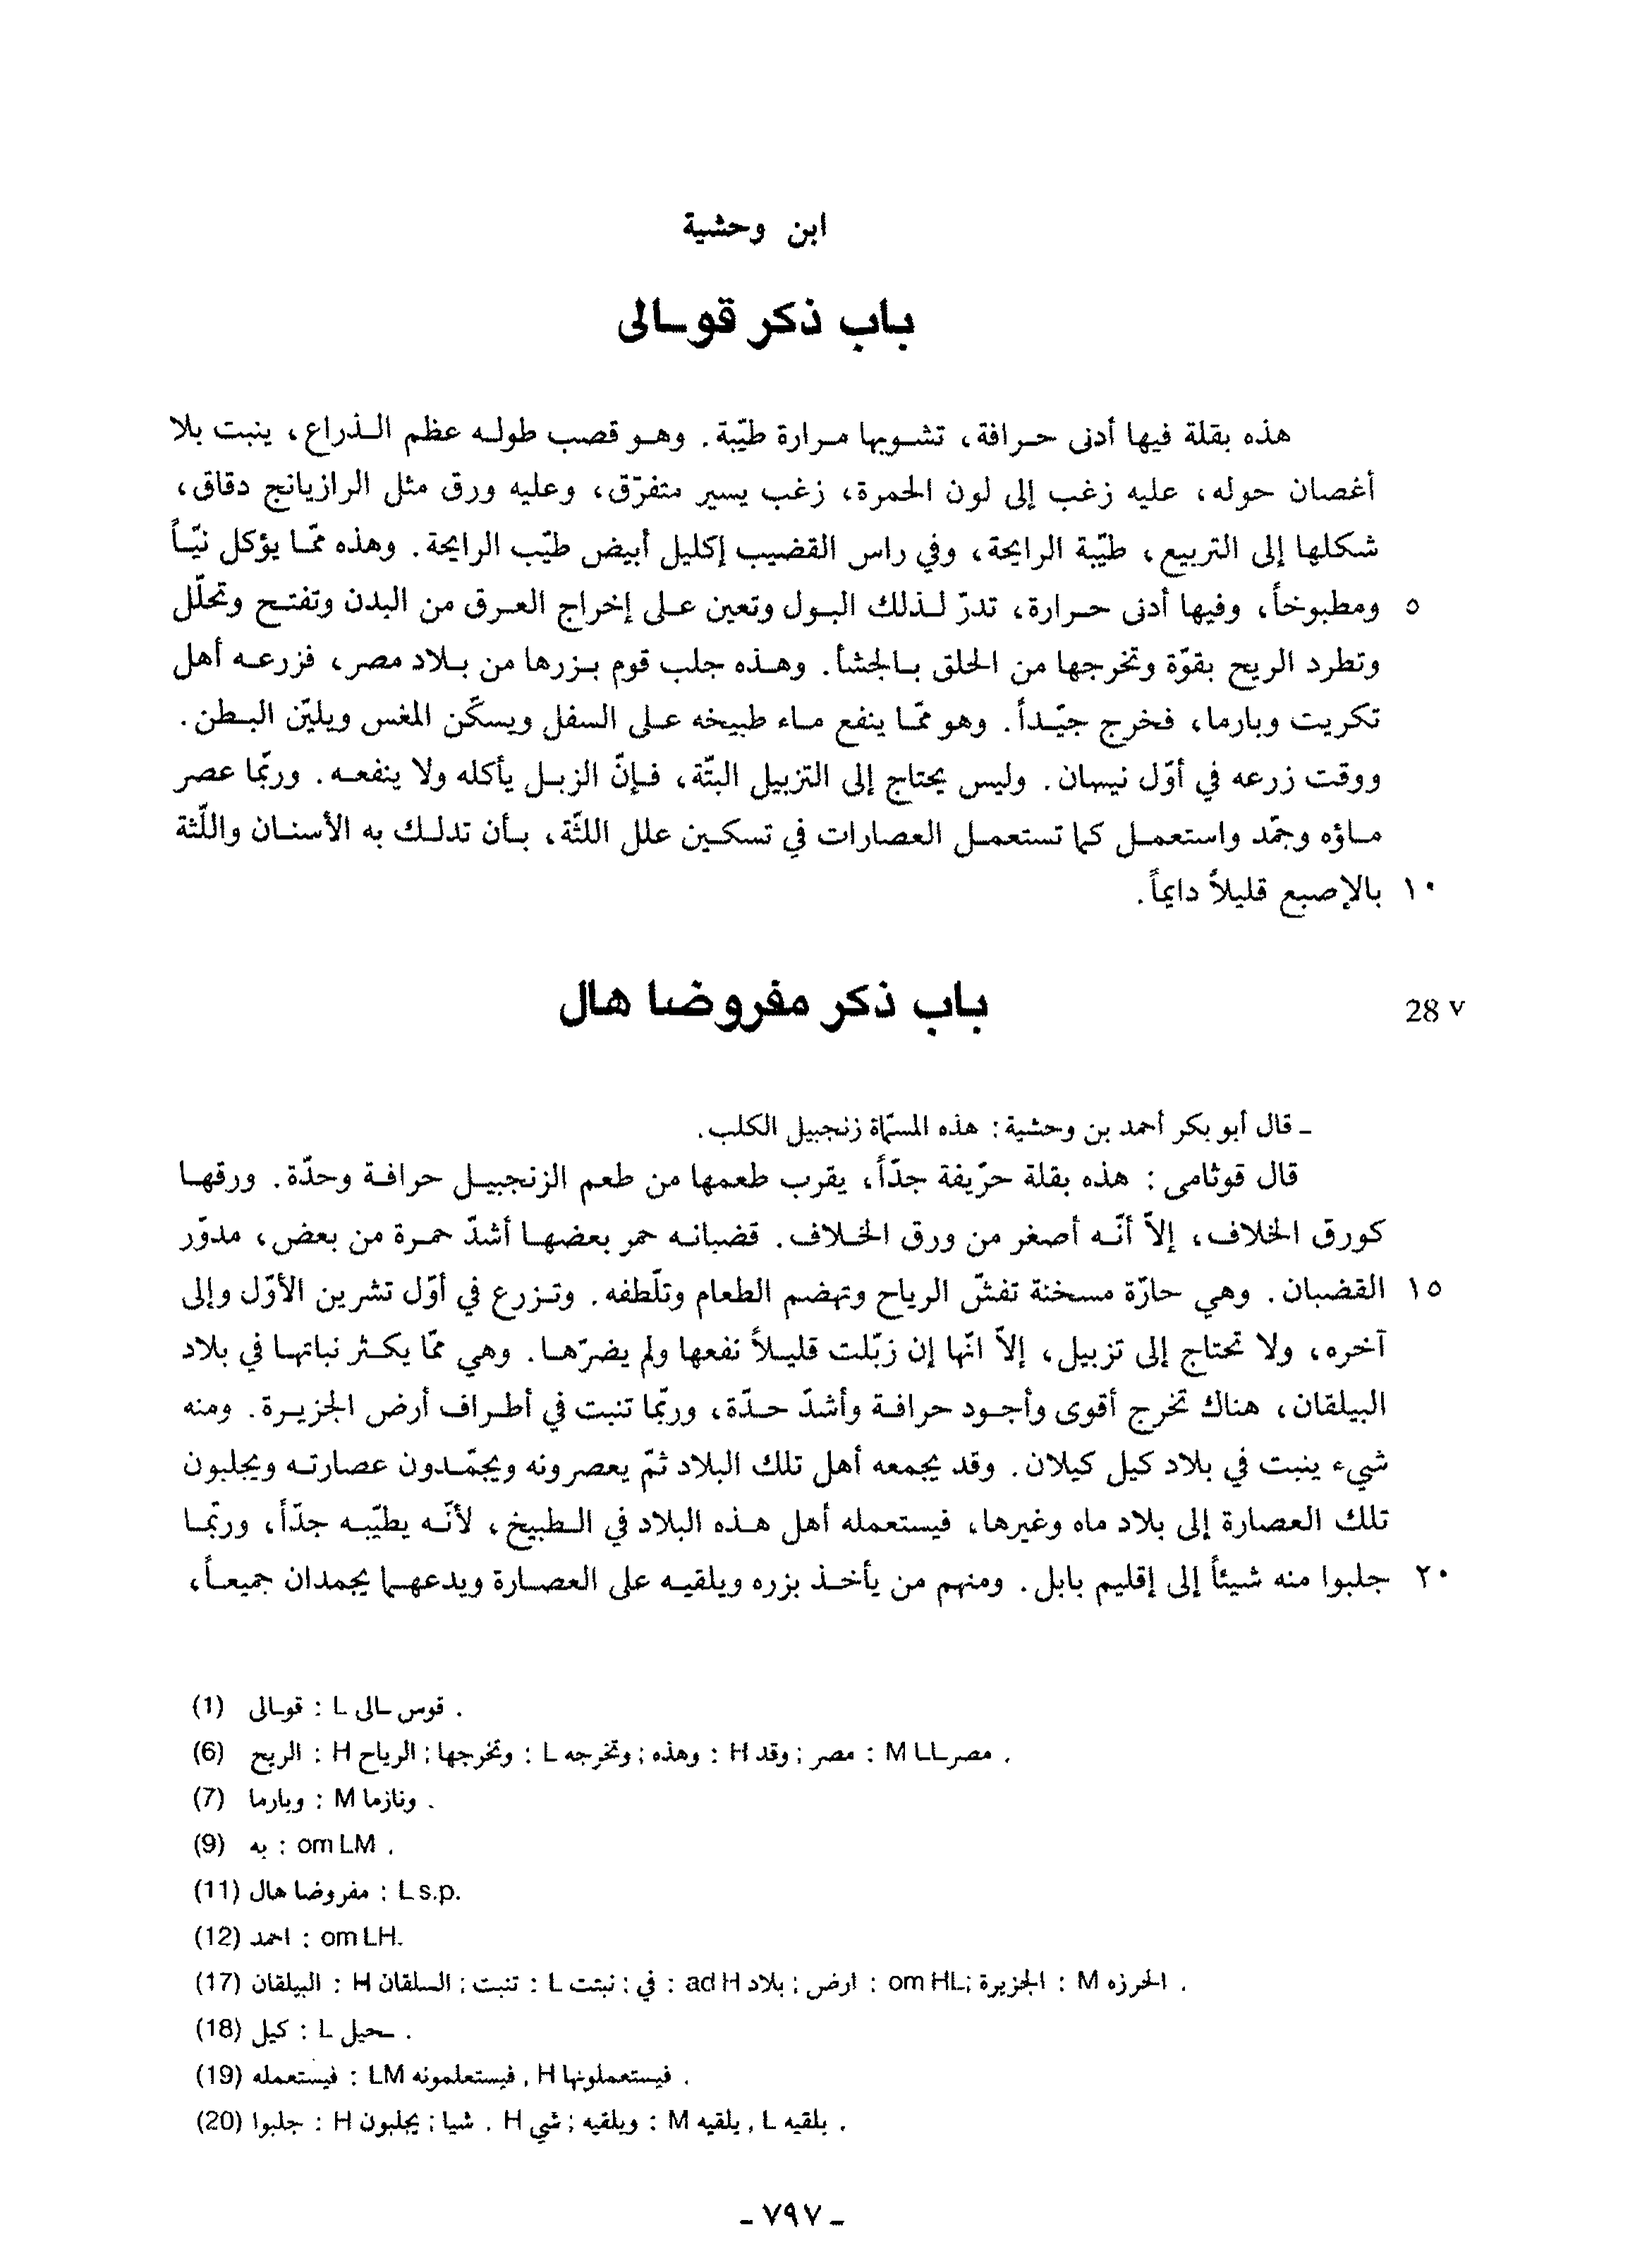 ابن وحشية
باب ذكر قوـالى
هذه بقلة فيها أدنى حرافة، تشوبها مرارة طيّبة. وهو قصب طوله عظم الذراع، ينبت بلا
أغصان حوله، عليه زغب إلى لون الحمرة، زغب يسير متفرّق، وعليه ورق مثل الرازيانج دقاق،
شكلها إلى التربيع، طيّبة الرايحة، وفي راس القضيب إكليل أبيض طيّب الرايحة. وهذه ممّا يؤكل نيّاً
٥ ومطبوخاً، وفيها أدنى حرارة، تدرّ لذلك البول وتعين على إخراج العرق من البدن وتفتح وتحلّل
وتطرد الريح بقوّة وتخرجها من الحلق بالجشأ. وهذه جلب قوم بزرها من بلاد مصر، فزرعه أهل
تكريت وبارما، فخرج جيّداً. وهو ممّا ينفع ماء طبيخه على السفل ويسكّن المغس ويليّن البطن.
ووقت زرعه في أوّل نيسان. وليس يحتاج إلى التزبيل البتّة، فإنّ الزبل يأكله ولا ينفعه. وربّما عصر
ماؤه وجمّد واستعمل كما تستعمل العصارات في تسكين علل اللثّة، بأن تدلك به الأسنان واللّثة
١٠ بالإصبع قليلاً دايماً.
باب ذكر مفروضا هال 28 v
ـ قال أبو بكر أحمد بن وحشية: هذه المسمّاة زنجبيل الكلب.
قال قوثامى: هذه بقلة حرّيفة جدّاً، يقرب طعمها من طعم الزنجبيل حرافة وحدّة. ورقها
كورق الخلاف، إلاّ أنّه أصغر من ورق الخلاف. قضبانه حمر بعضها أشدّ حمرة من بعض، مدوّر
١٥ القضبان. وهي حارّة مسخنة تفشّ الرياح وتهضم الطعام وتلّطفه. وتزرع في أوّل تشرين الأوّل وإلى
آخره، ولا تحتاج إلى تزبيل، إلاّ انّها إن زبّلت قليلاً نفعها ولم يضرّها. وهي ممّا يكثر نباتها في بلاد
البيلقان، هناك تخرج أقوى وأجود حرافة وأشدّ حدّة، وربّما تنبت في أطراف أرض الجزيرة. ومنه
شيء ينبت في بلاد كيل كيلان. وقد يجمعه أهل تلك البلاد ثمّ يعصرونه ويجمّدون عصارته ويجلبون
تلك العصارة إلى بلاد ماه وغيرها، فيستعمله أهل هذه البلاد في الطبيخ، لأنّه يطيّبه جدّاً، وربّما
٢٠ جلبوا منه شيئاً إلى إقليم بابل. ومنهم من يأخذ بزره ويلقيه على العصارة ويدعهما يجمدان جميعاً،
(1) قوـالى : L قوس ـالى .
(6) الريح : H الرياح ; وتخرجها : L وتخرجه ; وهذه : H وقد ; مصر : M مصرـاـا .
(7) وبارما : M ونازما .
(9) به : om LM .
(11) مفروضا هال : L s.p.
(12) احمد : om LH.
(17) البيلقان : H السلقان ; تنبت : L نبتت ; في : ad H بلاد ; ارض : om HL; الجزيرة : M الخرزه .
(18) كيل : L ـحيل .
(19) فيستعمله : LM فيستعلمونه , H فيستعملونها .
(20) جلبوا : H يجلبون ; شيا . H شي ; ويلقيه : M يلقيه , L بلقيه .
ـ ٧٩٧ ـ